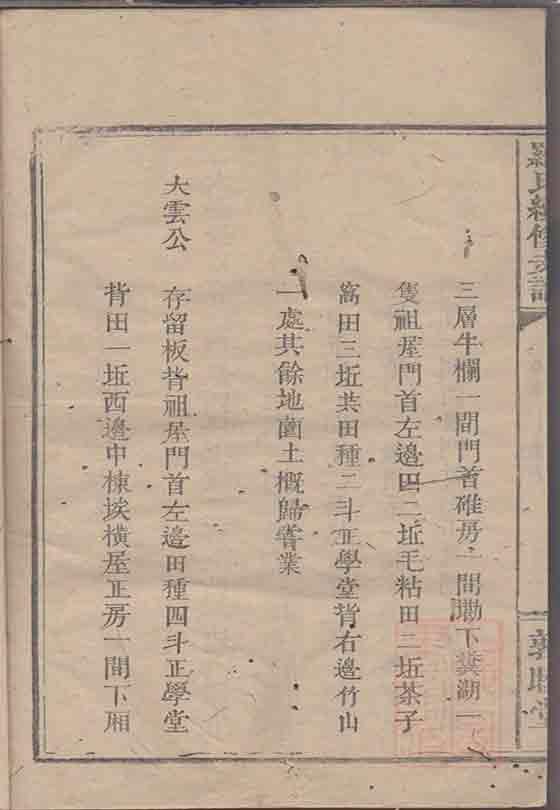 羅氏續修支譜
敦睦堂
三層牛欄一間門首碓房一間勘下糞湖一
隻祖屋門首左邊田二坵毛粘田二坵茶子
窩田三坵共田種二斗正學堂背右邊竹山
一處其餘地薗土概歸嘗業
大雲公 存留板背祖屋門首左邊田種四斗正學堂
背田一坵西邊中棟垓橫屋正房一間下廂